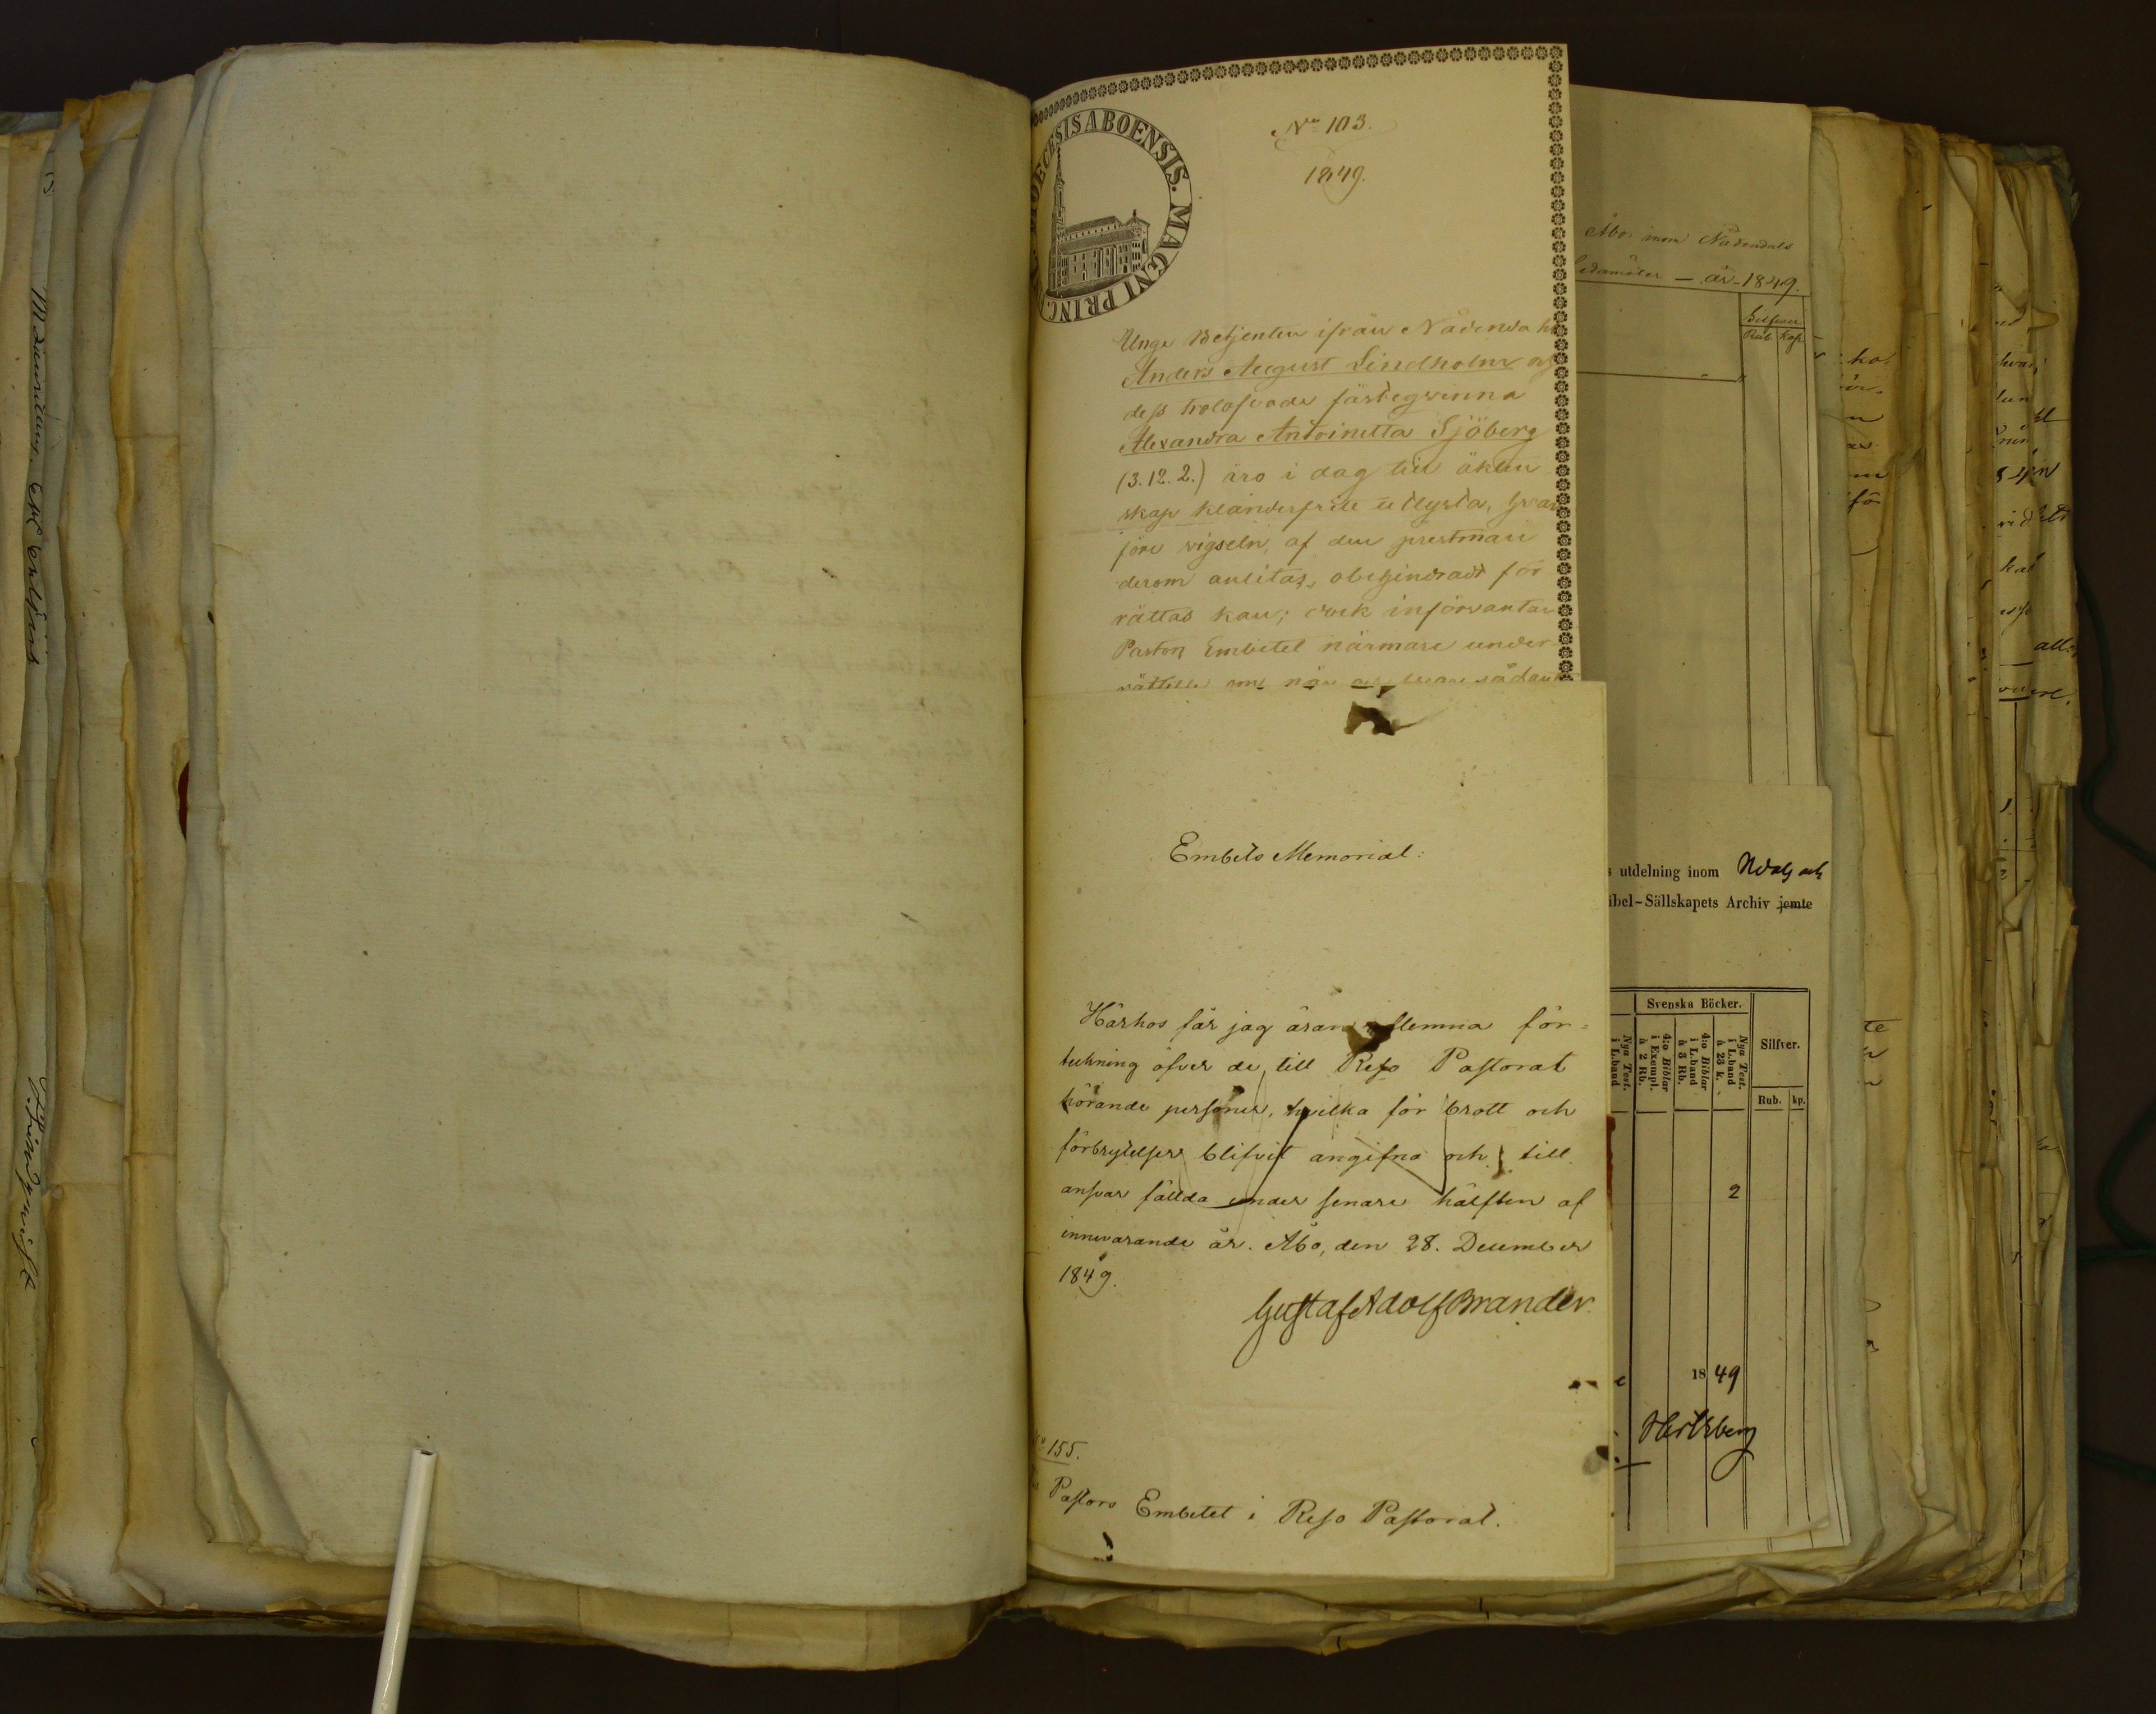 DIOECESIS ABOENSIS. MAGNI PRINC.
No 103.
1849.
Unge Betjenten ifrån Nådenda
Anders August Lindholm och
dess trolofvade fästeqvinna
Alexandra Antoinetta Sjöberg
(3.12.2.) äro i dag till äkten
skap klanderfritt utlysta, hvar
före vigseln, af den prestman
derom anlitas, obehindradt för
rättas kan; dock införväntar
Pastors Embetet närmare under
rättelse om när sådant
Embets Memorial:
Härhos får jag äran aflemna för=
teckning öfver de, till Reso Pastorat
hörande personer, hvilka för brott och
förbrytelser blifvit angifna och till
ansvar fällda under senare hälften af
innevarande år. Åbo, den 28. December
1849.
Gustaf Adolf Brander
No 155.
Pastors Embetet i Reso Pastorat.
Åbo inom Nådendals
ledamöter — år 1849.
Silfver
Rub. Kop.
utdelning inom Ndals och
ibel-Sällskapets Archiv jemte
Svenska Böcker.
Silfver.
Nya Test. i L.band
4:o Biblar i Exempl. à 2 Rb.
4:o Biblar i L.band à 3 Rb.
Nya Test. i L.band à 23 k.
Rub. kp.
2
1849